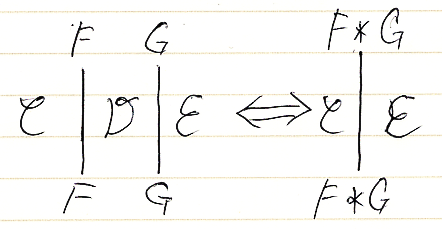 F G F*G
𝒞 𝒟 ℰ ⟺ 𝒞 ℰ
F G F*G